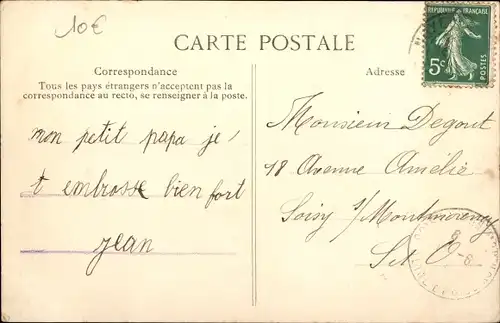 10€
CARTE POSTALE
RÉPUBLIQUE FRANÇAISE
5c
POSTES
Correspondance
Tous les pays étrangers n'acceptent pas la
correspondance au recto, se renseigner à la poste.
Adresse
mon petit papa je
t embrosse bien fort
Jean
Monsieur Degout
18 Avenue Amélie
Soisy s/Montmorency
S et O